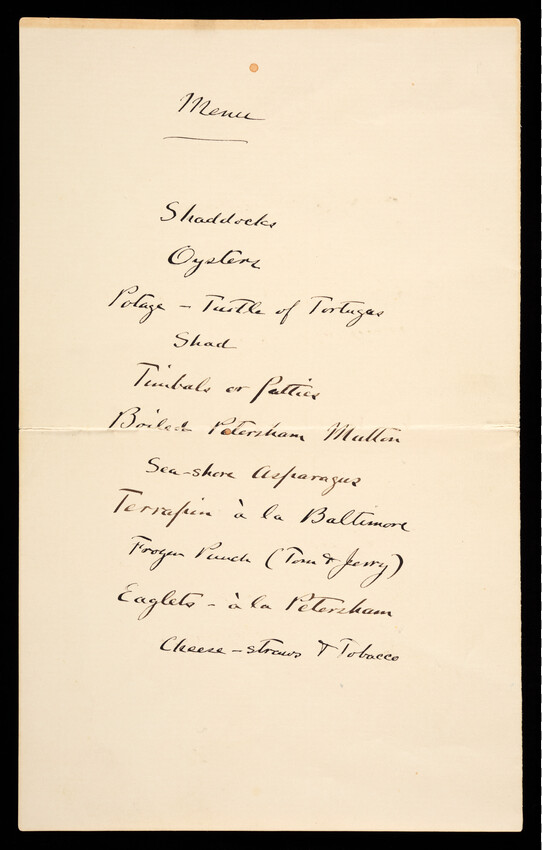 Menu
Shaddocks
Oysters
Potage - Turtle of Tortugas
Shad
Timbals or Patties
Boiled Petersham Mutton
Sea-shore Asparagus
Terrapin à la Baltimore
Frozen Punch (Tom & Jerry)
Eaglets - à la Petersham
Cheese-straws & Tobacco